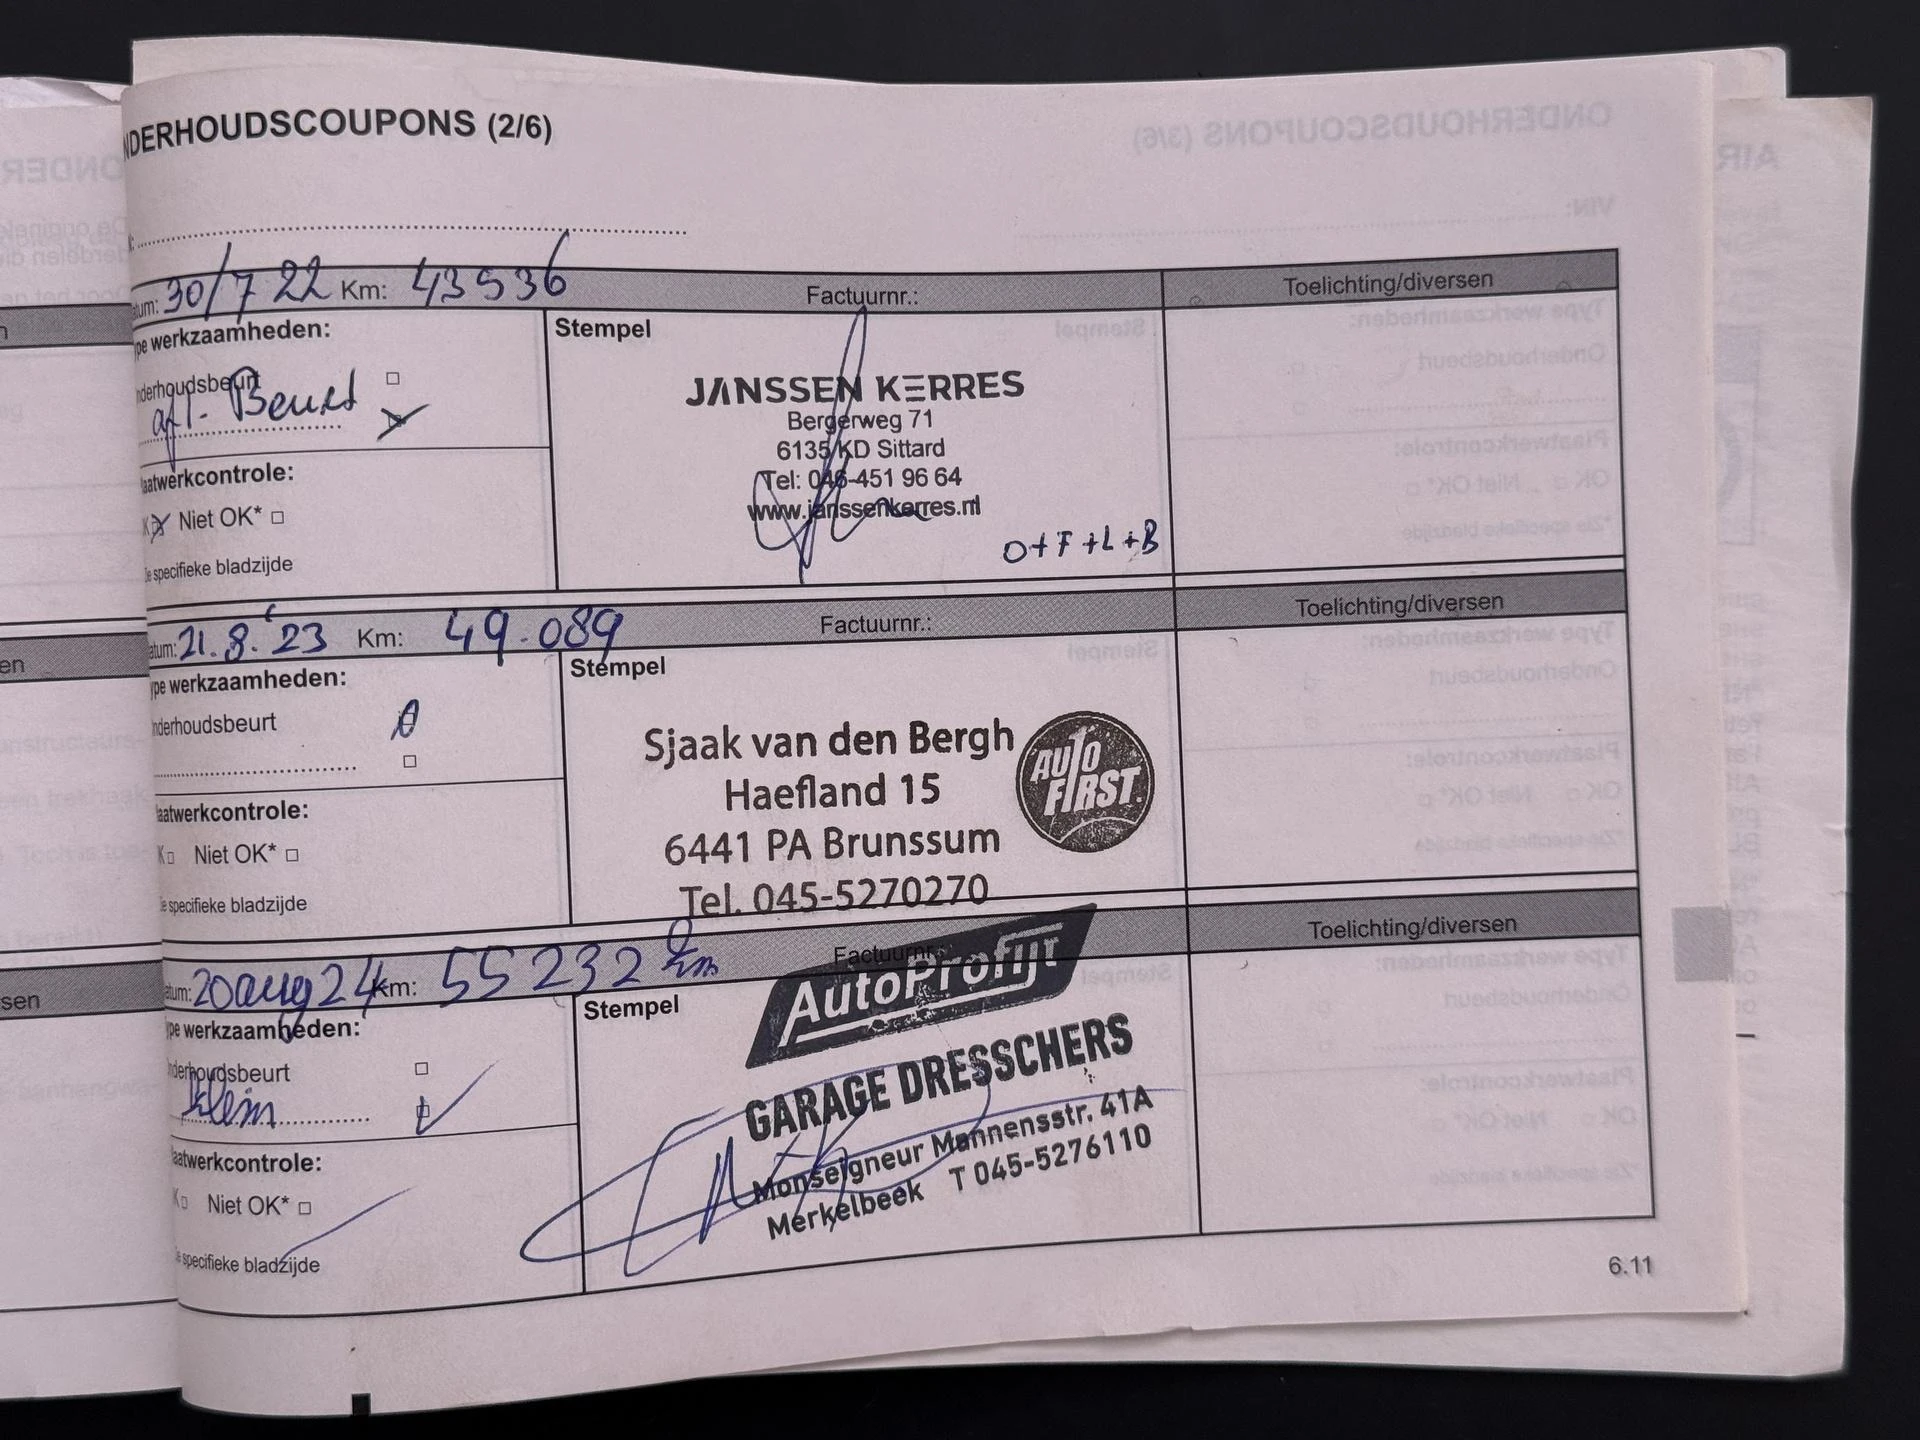 NDERHOUDSCOUPONS (2/6)
tum: 30/7 22 Km: 43536 Factuurnr.: Toelichting/diversen
pe werkzaamheden:
Stempel
nderhoudsbeurt □
afl. Beurt
JANSSEN KERRES
Bergerweg 71
6135 KD Sittard
Tel: 046-451 96 64
www.janssenkerres.nl
O+F+L+B
aatwerkcontrole:
K Niet OK* □
ie specifieke bladzijde
atum: 21.8.'23 Km: 49.089 Factuurnr.: Toelichting/diversen
ype werkzaamheden:
Stempel
nderhoudsbeurt
□
Sjaak van den Bergh
Haefland 15
6441 PA Brunssum
Tel. 045-5270270
AUTO
FIRST.
aatwerkcontrole:
K □ Niet OK* □
ie specifieke bladzijde
atum: 20 aug 24 Km: 55232 km Factuurnr. Toelichting/diversen
ype werkzaamheden:
Stempel
nderhoudsbeurt □
klein
AutoProfijt
GARAGE DRESSCHERS
Monseigneur Mannensstr. 41A
Merkelbeek T 045-5276110
aatwerkcontrole:
K □ Niet OK* □
ie specifieke bladzijde
6.11